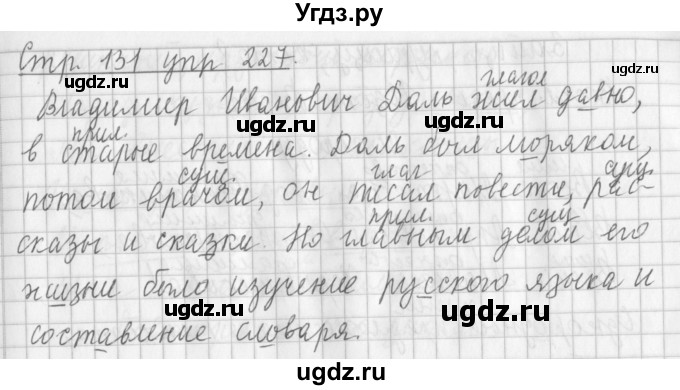 Угдз.ру
Стр. 131 упр 227.
глагол
Владимир Иванович Даль жил давно,
прил.
в старые времена. Даль был моряком,
сущ. глаг сущ.
потом врачом, он писал повести, рас-
прил. сущ
сказы и сказки. Но главным делом его
жизни было изучение русского языка и
составление словаря.
ugdz.ru ugdz.ru ugdz.ru
ugdz.ru ugdz.ru
ugdz.ru ugdz.ru ugdz.ru
ugdz.ru ugdz.ru
ugdz.ru ugdz.ru ugdz.ru